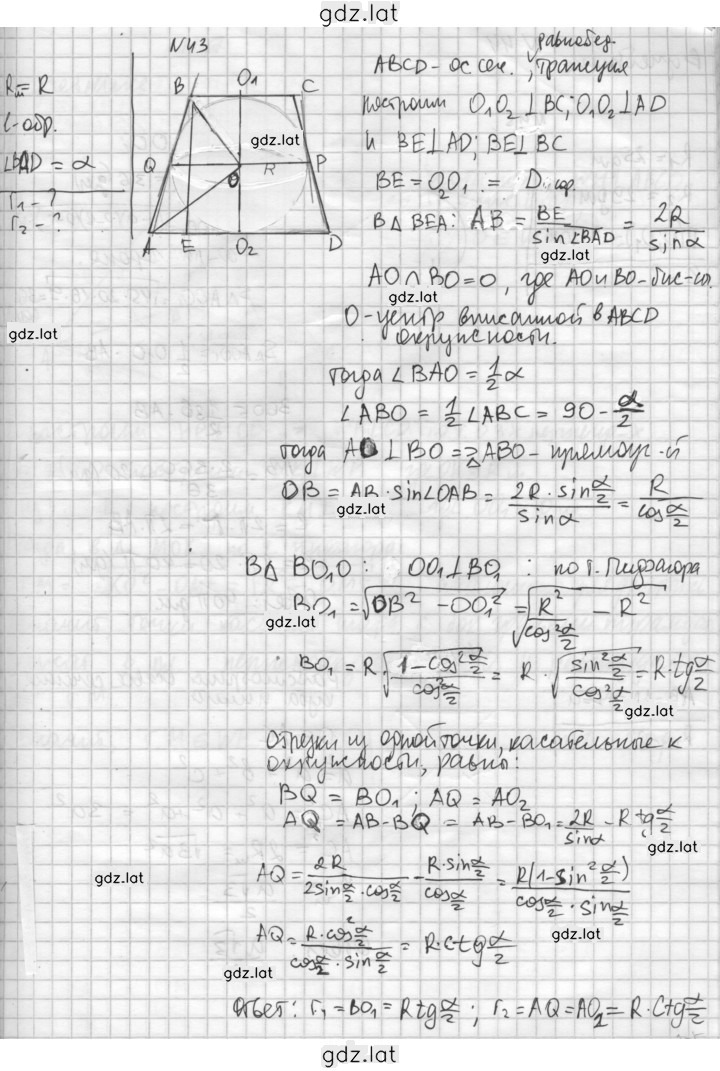 gdz.lat
N43
R_ш = R
l-обр.
∠BAD = α
r₁ - ?
r₂ - ?
B O₁ C
Q O R P
A E O₂ D
равнобед.
ABCD - ос сеч. , трапеция
построим O₁O₂ ⊥ BC; O₁O₂ ⊥ AD
и BE ⊥ AD; BE ⊥ BC
gdz.lat
BE = O₂O₁ = Dшар.
В △ BEA: AB = BE / sin∠BAD = 2R / sinα
gdz.lat
AO ∩ BO = O, где AO и BO - бис-сы.
gdz.lat
O - центр вписанной в ABCD
окружности.
gdz.lat
тогда ∠BAO = 1/2 α
∠ABO = 1/2 ∠ABC = 90 - α/2
тогда AO ⊥ BO => △ABO - прямоуг-й
OB = AB · sin∠OAB = 2R · sin α/2 / sinα = R / cos α/2
gdz.lat gdz.lat
В △ BO₁O : OO₁ ⊥ BO₁ : по т. Пифагора
BO₁ = √(OB² - OO₁²) = √(R² / cos² α/2 - R²)
gdz.lat
BO₁ = R √((1 - cos² α/2) / cos² α/2) = R · √(sin² α/2 / cos² α/2) = R · tg α/2
gdz.lat
Отрезки из одной точки, касательные к
окружности, равны:
BQ = BO₁ ; AQ = AO₂
AQ = AB - BQ = AB - BO₁ = 2R / sinα - R tg α/2
gdz.lat
gdz.lat
AQ = 2R / (2 sin α/2 · cos α/2) - R · sin α/2 / cos α/2 = R(1 - sin² α/2) / (cos α/2 · sin α/2)
gdz.lat
AQ = R · cos² α/2 / (cos α/2 · sin α/2) = R · ctg α/2
gdz.lat
Ответ: r₁ = BO₁ = R tg α/2 ; r₂ = AQ = AO₂ = R · Ctg α/2
gdz.lat